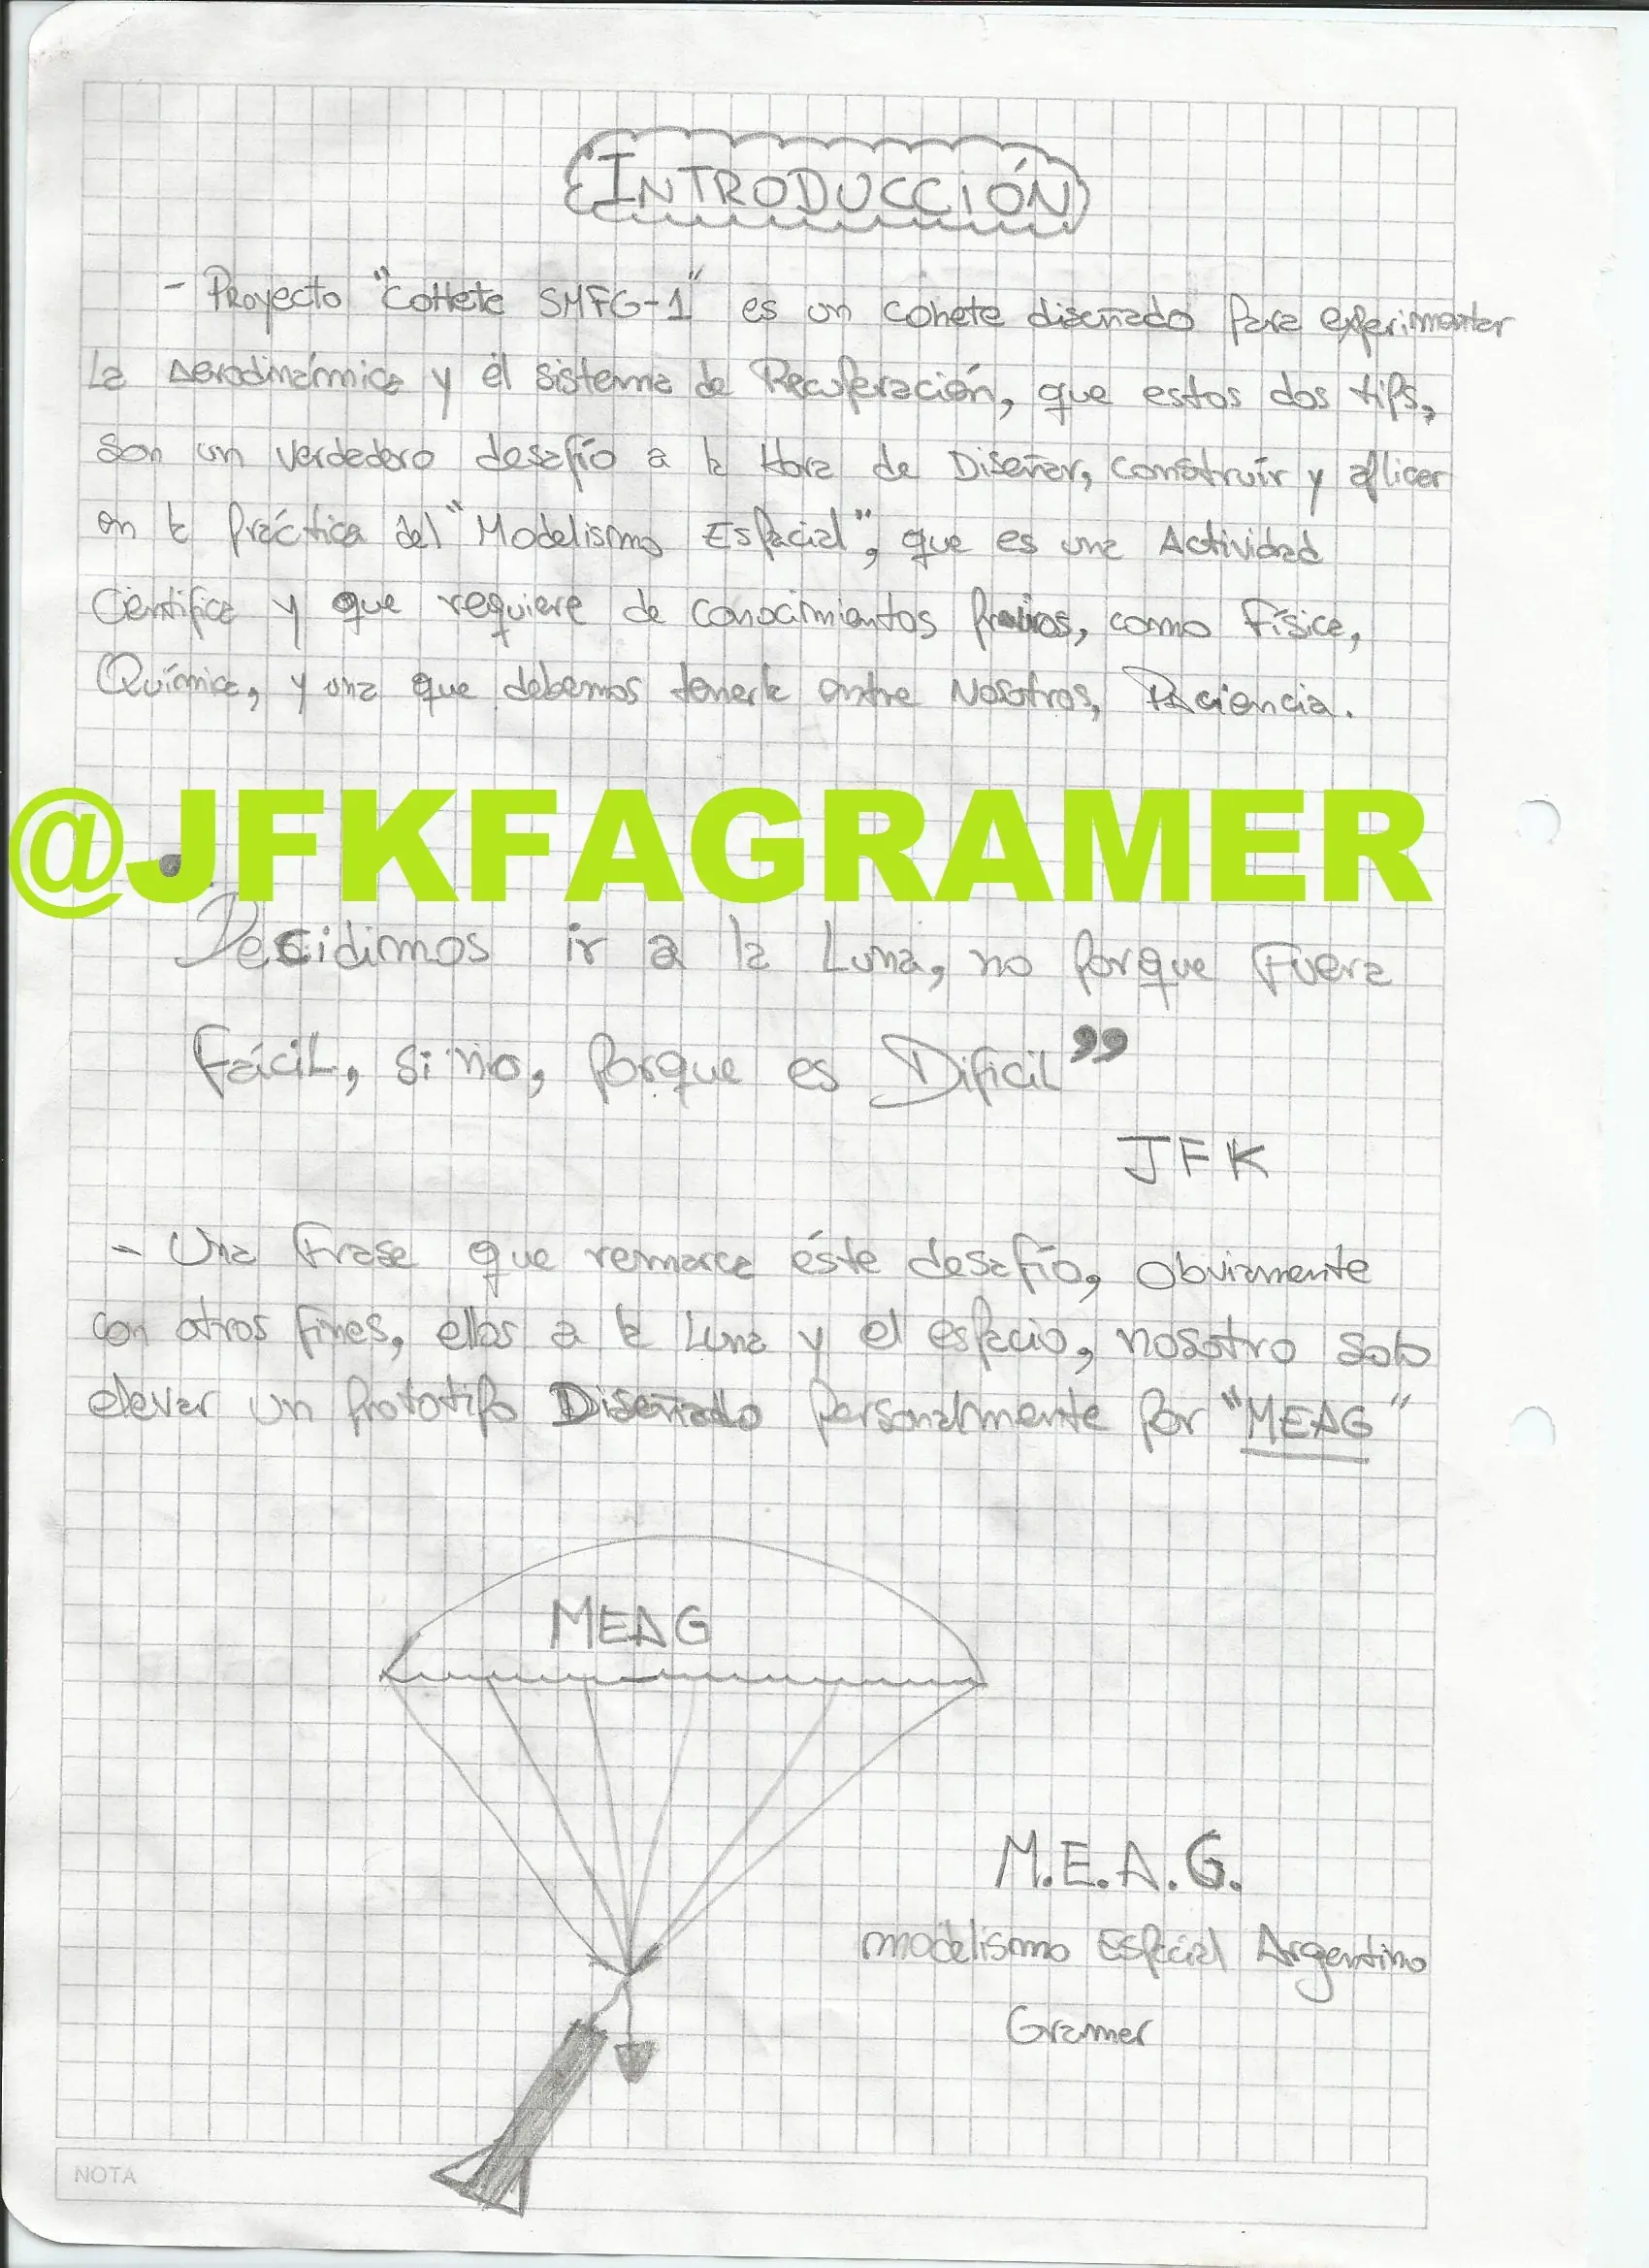 INTRODUCCIÓN
- Proyecto "Cohete SMFG-1" es un cohete diseñado para experimentar
La Aerodinámica y él sistema de Recuperación, que estos dos tips,
son un verdadero desafío a la Hora de Diseñar, construír y aplicar
en la práctica del "Modelismo Espacial", que es una Actividad
Científica y que requiere de conocimientos previos, como Física,
Química, y una que debemos tenerla entre Nosotros, Paciencia.
@JFKFAGRAMER
Decidimos ir a la Luna, no porque Fuera
fácil, si no, porque es Dificil”
JFK
- Una Frase que remarca éste desafío, obviamente
con otros fines, ellos a la Luna y el espacio, nosotro solo
elevar un prototipo Diseñado personalmente por "MEAG"
MEAG
M.E.A.G.
modelismo Espacial Argentino
Gramer
NOTA